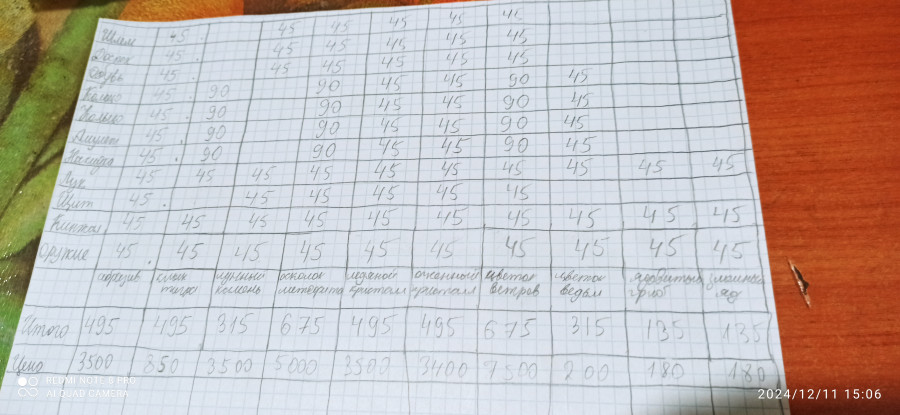 Шлем 45. 45 45 45 45 45
Доспех 45. 45 45 45 45 45
Обувь 45. 45 45 45 45 45
Кольцо 45. 90 90 45 45 90 45
Кольцо 45. 90 90 45 45 90 45
Амулет 45. 90 90 45 45 90 45
Накидка 45. 90 90 45 45 90 45
Лук 45 45 45 45 45 45 45 45 45 45
Щит 45. 45 45 45 45 45
Кинжал 45 45 45 45 45 45 45 45 45 45
Оружие 45. 45 45 45 45 45 45 45 45 45
абразив лунный камень осколок метеорита ледяной кристалл огненный кристалл цветок ветров цветок ведьм ядовитый гриб змеиный яд
Итого 495 495 315 675 495 495 675 315 135 135
Цена 3500 850 3500 5000 3500 3400 7500 200 180 180
REDMI NOTE 8 PRO
AI QUAD CAMERA
2024/12/11 15:06